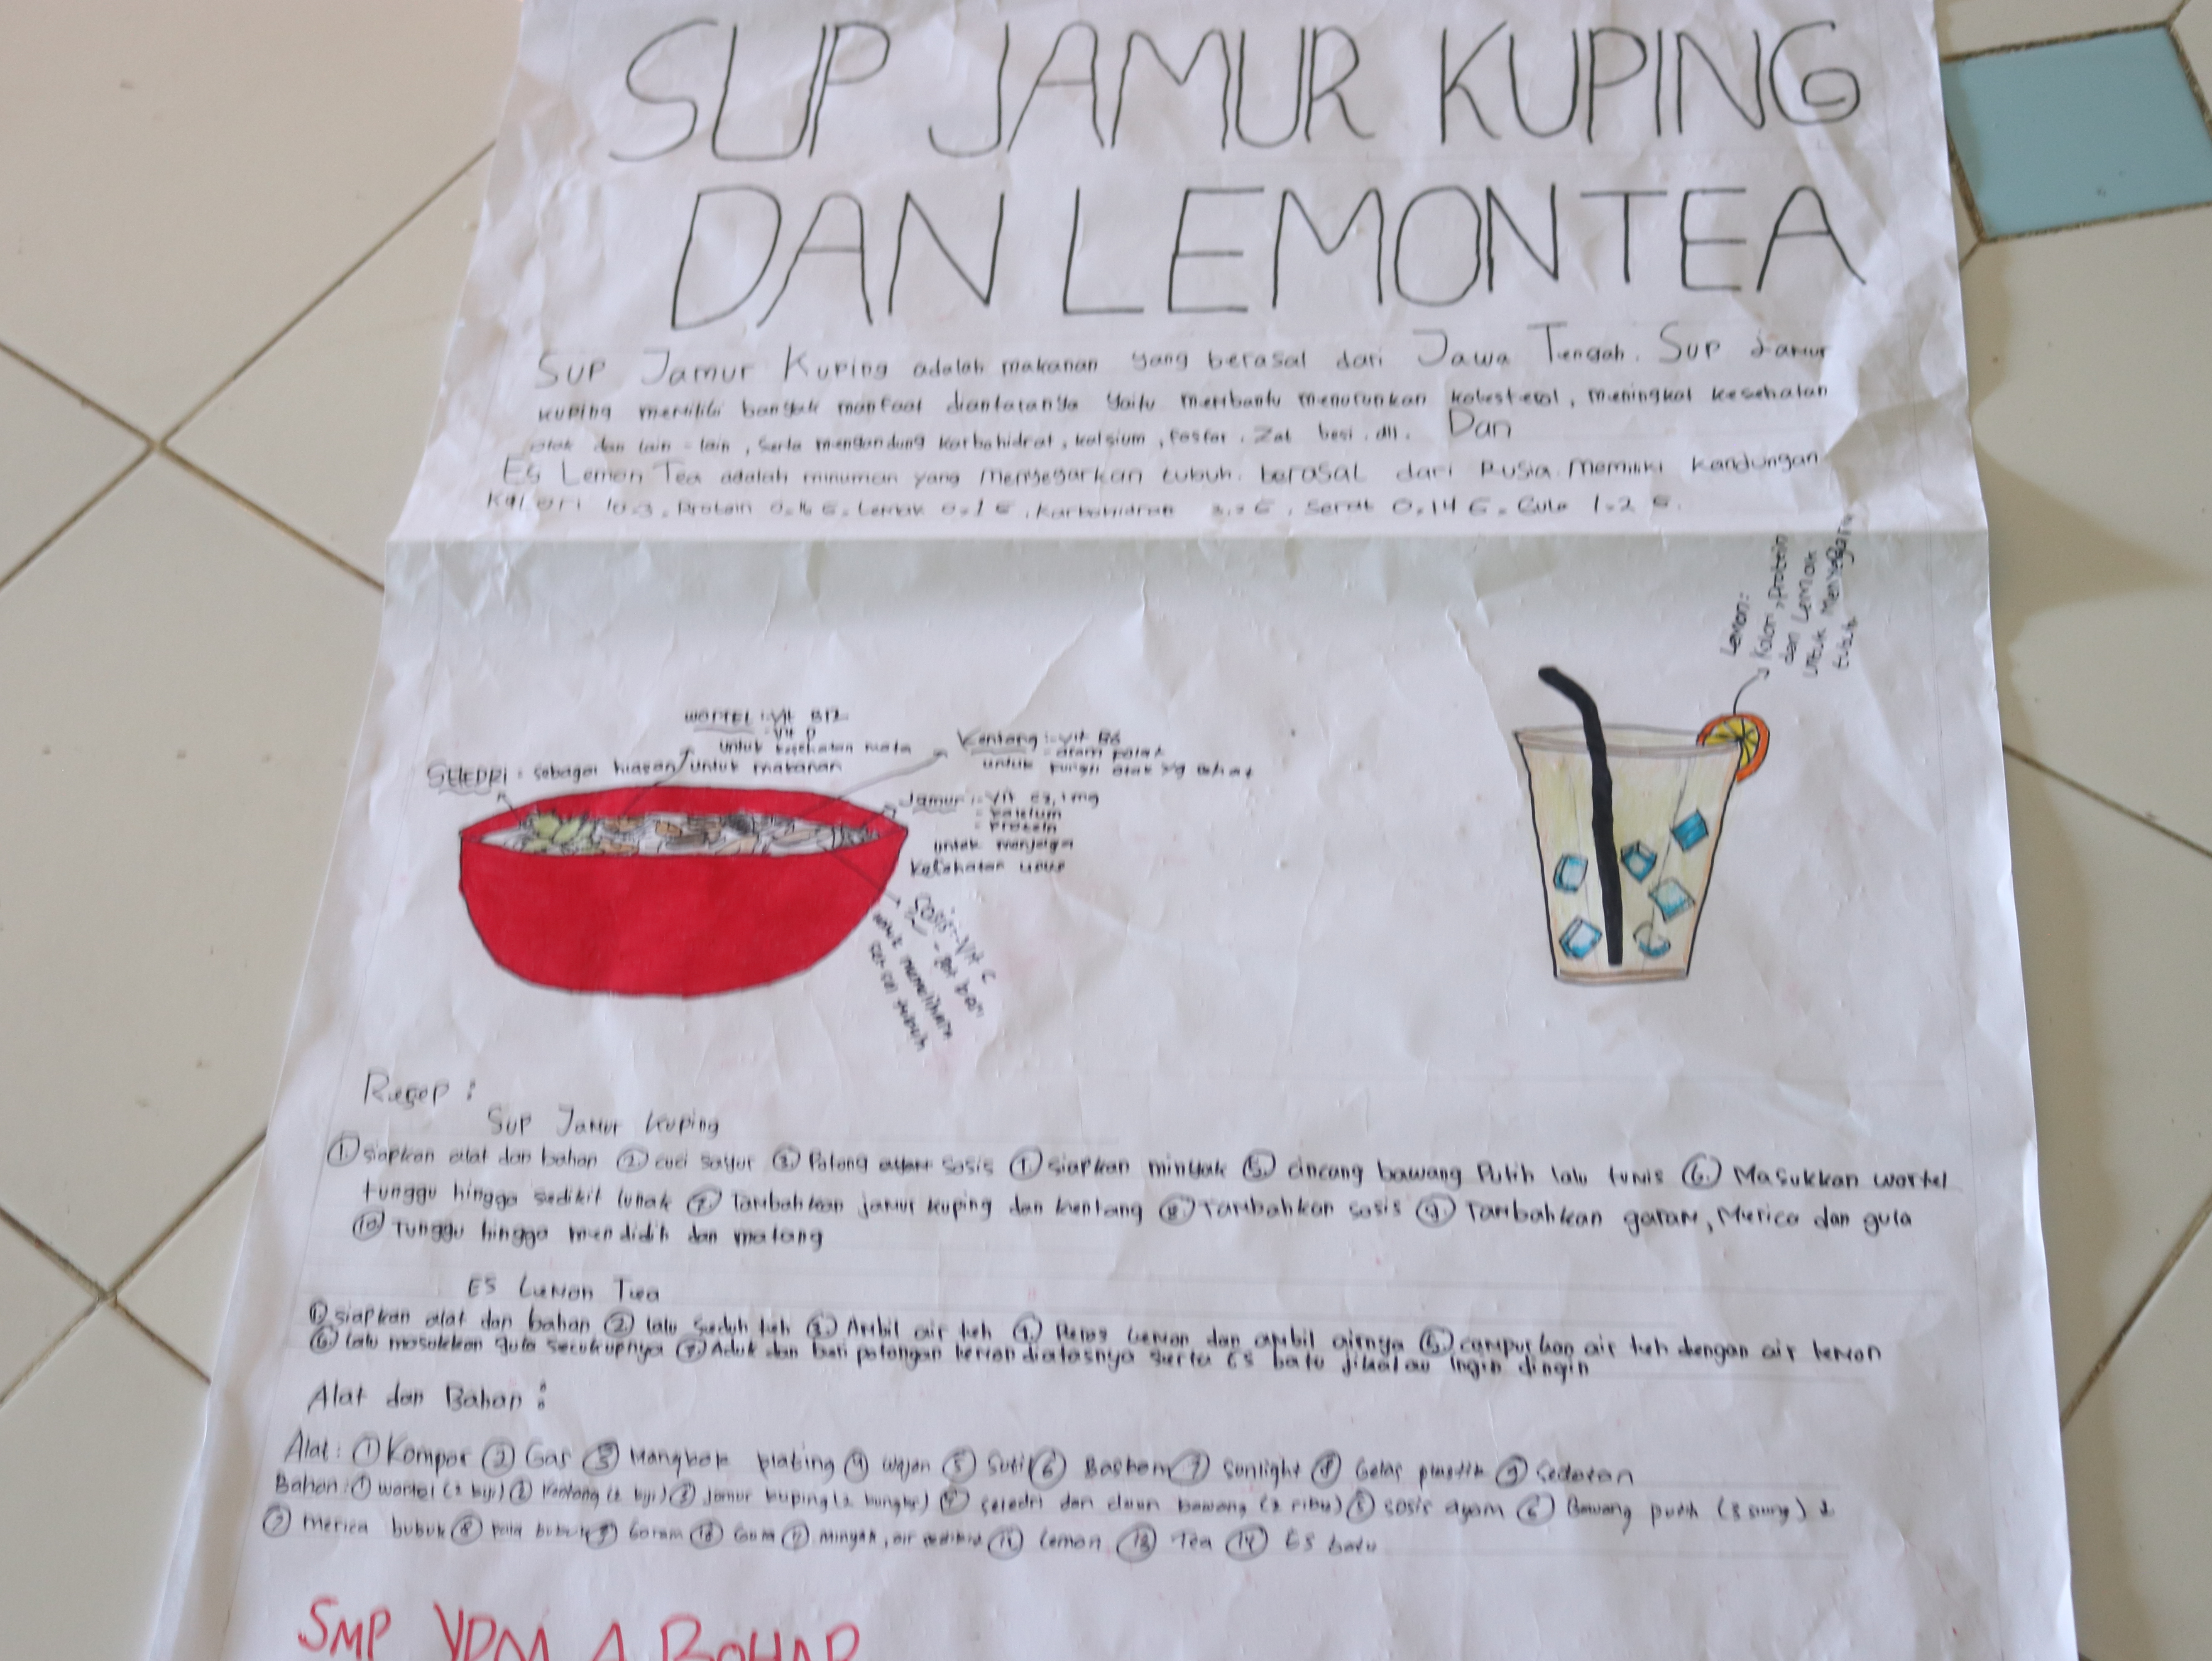 SUP JAMUR KUPING
DAN LEMONTEA
Sup Jamur Kuping adalah makanan yang berasal dari Jawa Tengah. Sup Jamur
kuping memiliki banyak manfaat diantaranya yaitu membantu menurunkan kolesterol, meningkat kesehatan
otak dan lain-lain, serta mengandung karbohidrat, kalsium, fosfor, Zat besi, dll. Dan
Es Lemon Tea adalah minuman yang menyegarkan tubuh. berasal dari Rusia. Memiliki kandungan
Kalori 10.3, Protein 0.16 G, Lemak 0.1 G, Karbohidrat G, Serat 0.14 G, Gula 1.2 G.
Lemon:
Kalori, Protein
dan Lemak
untuk Menyegarkan
tubuh
WORTEL :- Vit B12
- Vit D
untuk kesehatan mata
SELEDRI : sebagai hiasan untuk makanan
Kentang :- Vit B6
- asam folat
untuk fungsi otak yg sehat
Jamur :- Vit C 3,1 mg
- kalsium
- Protein
untuk menjaga
kesehatan usus
Sosis - Vit C
- Zat besi
untuk memelihara
sel-sel tubuh
Resep :
Sup Jamur Kuping
① siapkan alat dan bahan ② cuci sayur ③ Potong sosis ④ siapkan minyak ⑤ cincang bawang Putih lalu tumis ⑥ Masukkan wortel
tunggu hingga sedikit lunak ⑦ Tambahkan jamur kuping dan kentang ⑧ Tambahkan sosis ⑨ Tambahkan garam, Merica dan gula
⑩ Tunggu hingga mendidih dan matang
ES Lemon Tea
① siapkan alat dan bahan ② lalu seduh teh ③ Ambil air teh ④ Peras Lemon dan ambil airnya ⑤ campurkan air teh dengan air lemon
⑥ lalu masukkan gula secukupnya ⑦ Aduk dan beri potongan lemon diatasnya serta Es batu jikalau ingin dingin
Alat dan Bahan :
Alat : ① Kompor ② Gas ③ Mangkok plating ④ wajan ⑤ Sutil ⑥ Baskom ⑦ sunlight ⑧ Gelas plastik ⑨ sedotan
Bahan : ① wortel (2 biji) ② Kentang (2 biji) ③ jamur kuping (2 bungkus) ④ seledri dan daun bawang (2 ribu) ⑤ sosis ayam ⑥ Bawang putih (3 siung)
⑦ merica bubuk ⑧ pala bubuk ⑨ Garam ⑩ Gula ⑪ minyak, air ⑫ Lemon ⑬ Tea ⑭ Es batu
SMP YPM 4 BOHAR